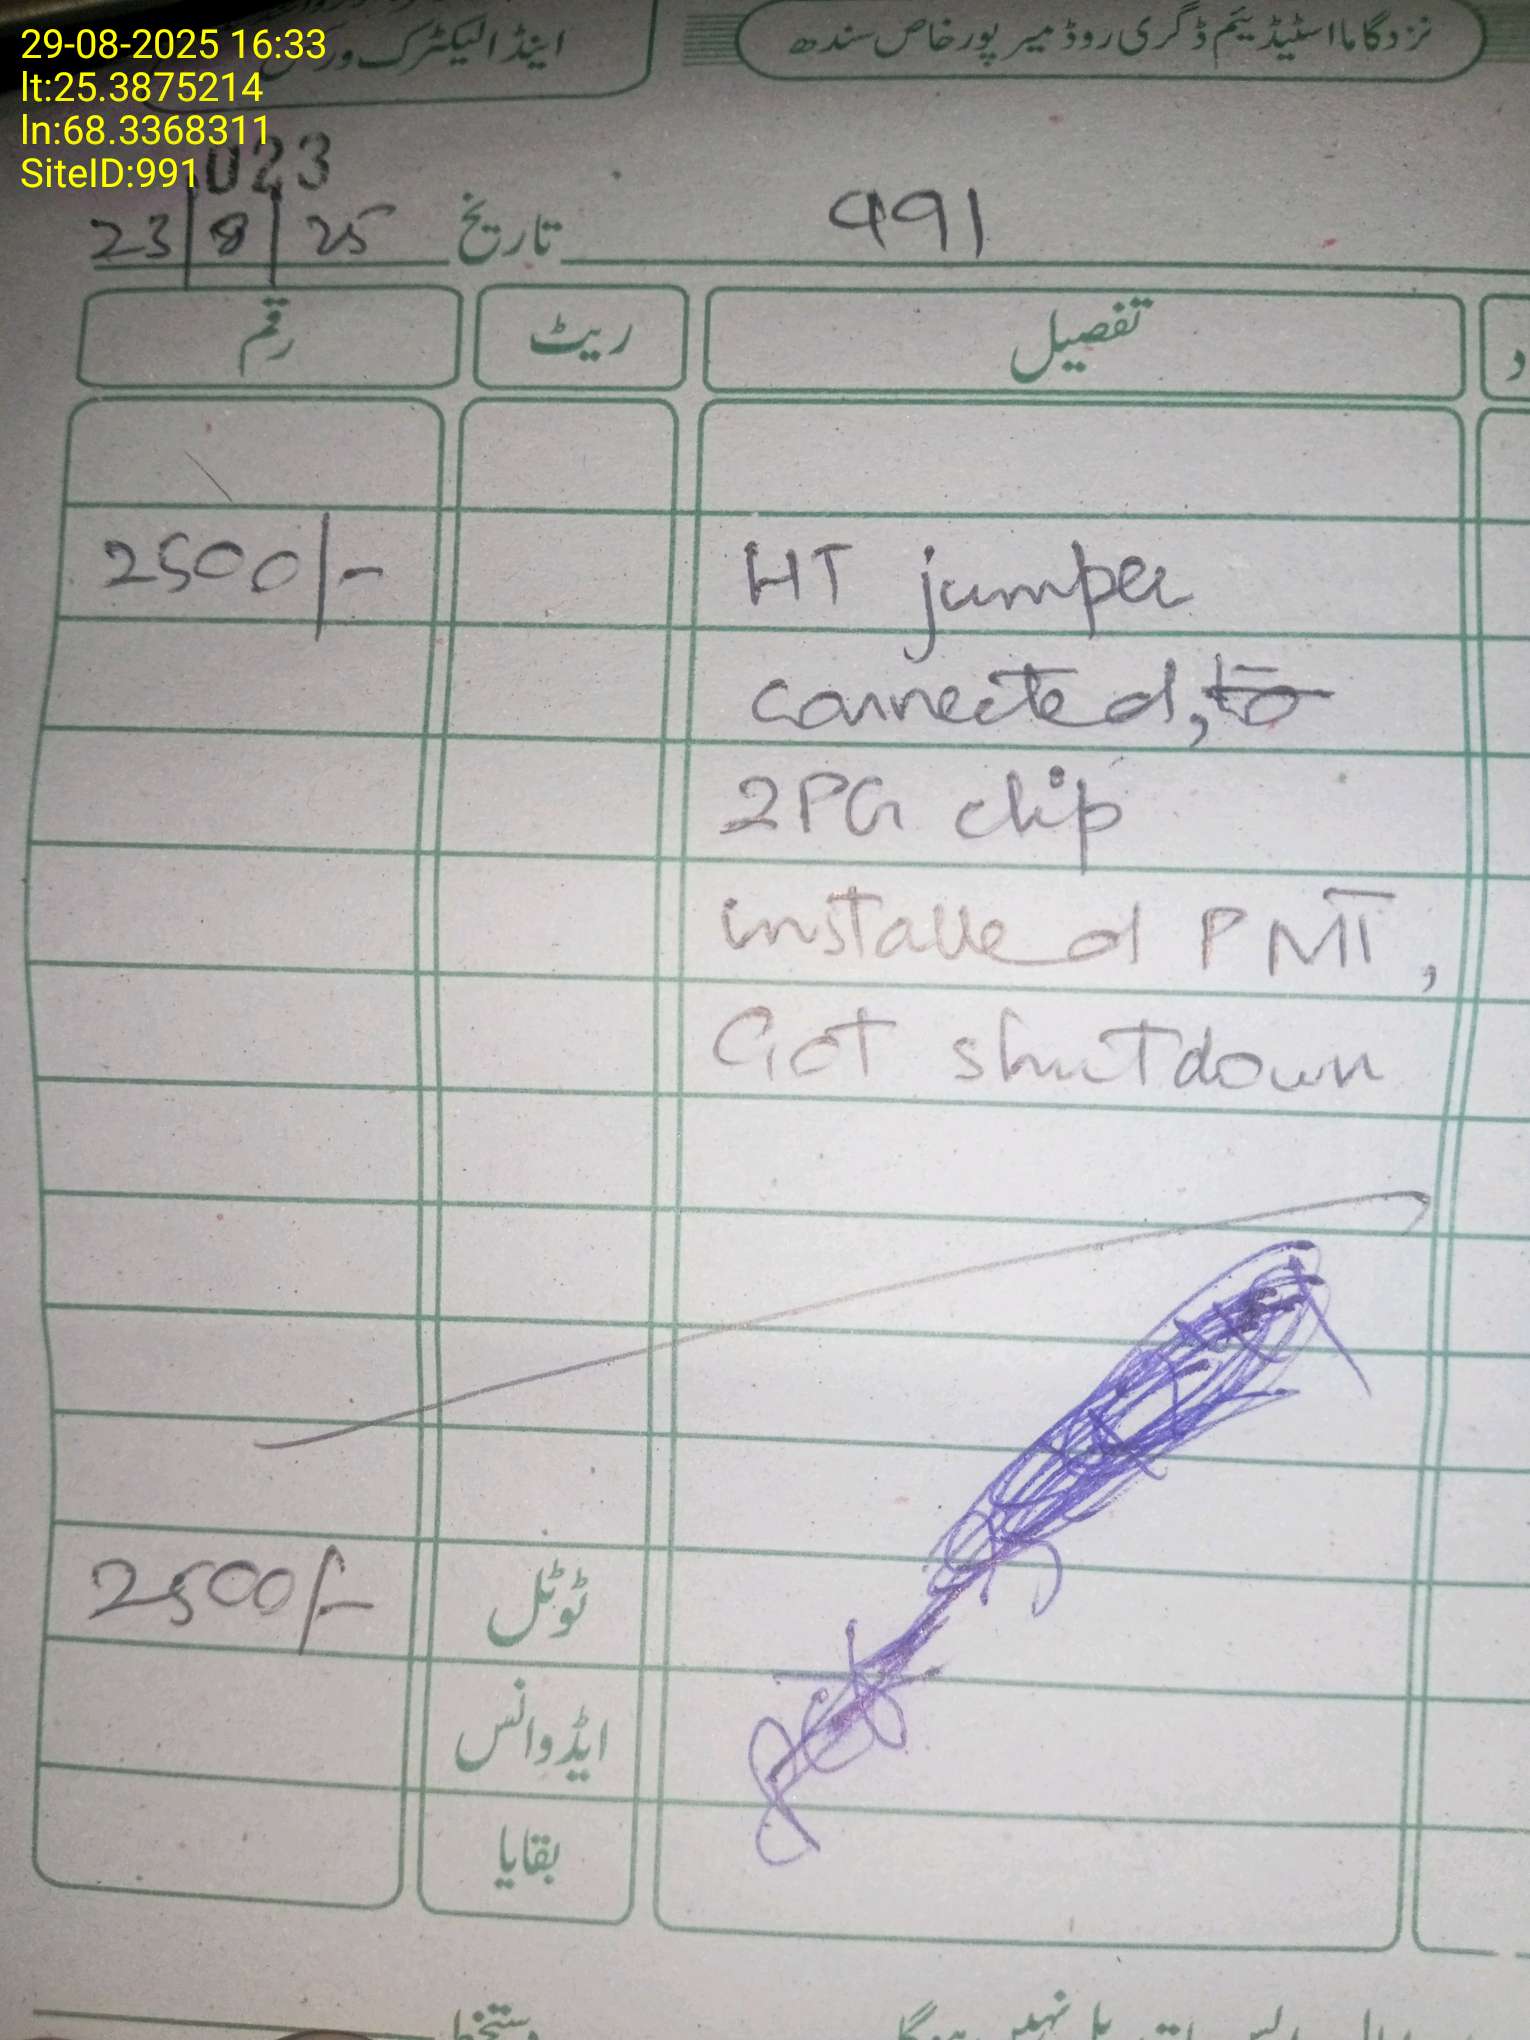 29-08-2025 16:33
lt:25.3875214
ln:68.3368311
SiteID:991
اینڈ الیکٹرک ورکس
نزد گاما اسٹیڈیم ڈگری روڈ میرپورخاص سندھ
023
991 تاریخ 23/8/25
تفصیل ریٹ رقم
HT jumper 2500/-
connected, to
2PG clip
installed PMT,
Got shutdown
ٹوٹل 2500/-
ایڈوانس
بقایا
دستخط